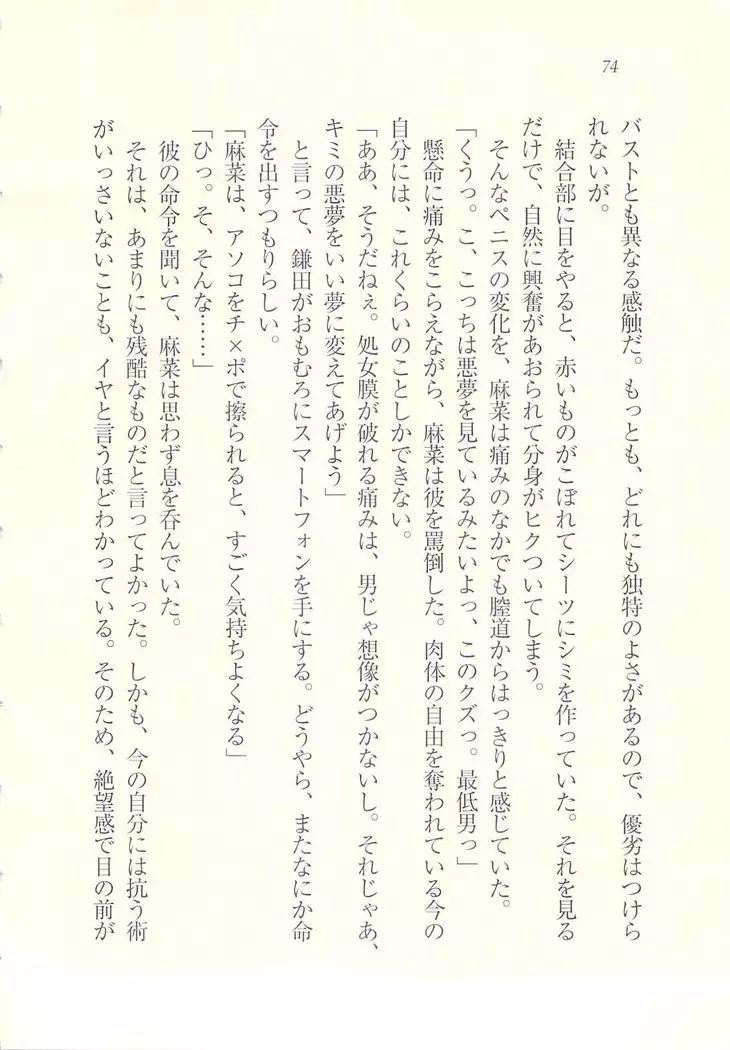 74
バストとも異なる感触だ。もっとも、どれにも独特のよさがあるので、優劣はつけら
れないが。
結合部に目をやると、赤いものがこぼれてシーツにシミを作っていた。それを見る
だけで、自然に興奮があおられて分身がヒクついてしまう。
そんなペニスの変化を、麻菜は痛みのなかでも膣道からはっきりと感じていた。
「くうっ。こ、こっちは悪夢を見ているみたいよっ、このクズっ。最低男っ」
懸命に痛みをこらえながら、麻菜は彼を罵倒した。肉体の自由を奪われている今の
自分には、これくらいのことしかできない。
「ああ、そうだねぇ。処女膜が破れる痛みは、男じゃ想像がつかないし。それじゃあ、
キミの悪夢をいい夢に変えてあげよう」
と言って、鎌田がおもむろにスマートフォンを手にする。どうやら、またなにか命
令を出すつもりらしい。
「麻菜は、アソコをチ×ポで擦られると、すごく気持ちよくなる」
「ひっ。そ、そんな……」
彼の命令を聞いて、麻菜は思わず息を呑んでいた。
それは、あまりにも残酷なものだと言ってよかった。しかも、今の自分には抗う術
がいっさいないことも、イヤと言うほどわかっている。そのため、絶望感で目の前が